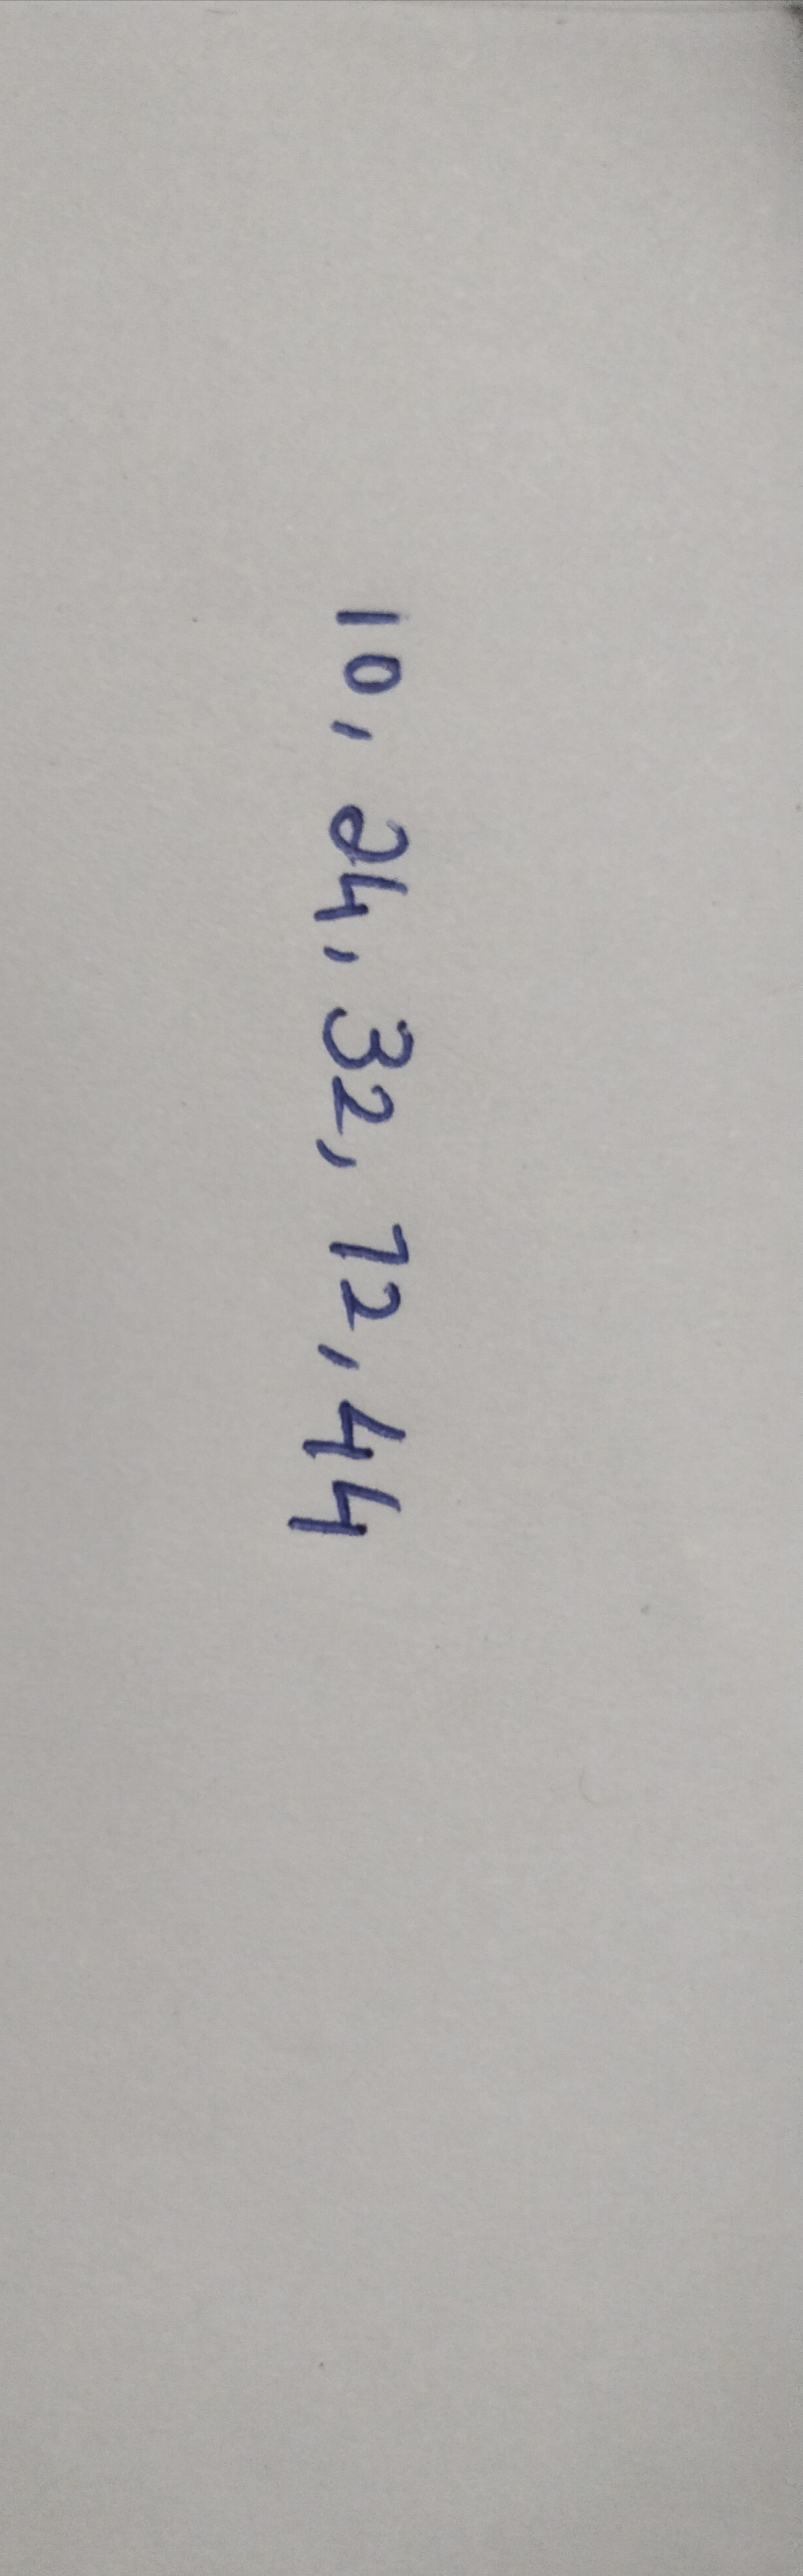 10, 24, 32, 72, 44